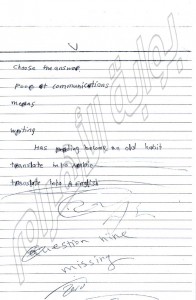 Choose the answer
Poor of communications
means
writing
Has writing become an old habit
translate into Arabic
translate into English
Question nine
missing
بوابة الأهرام